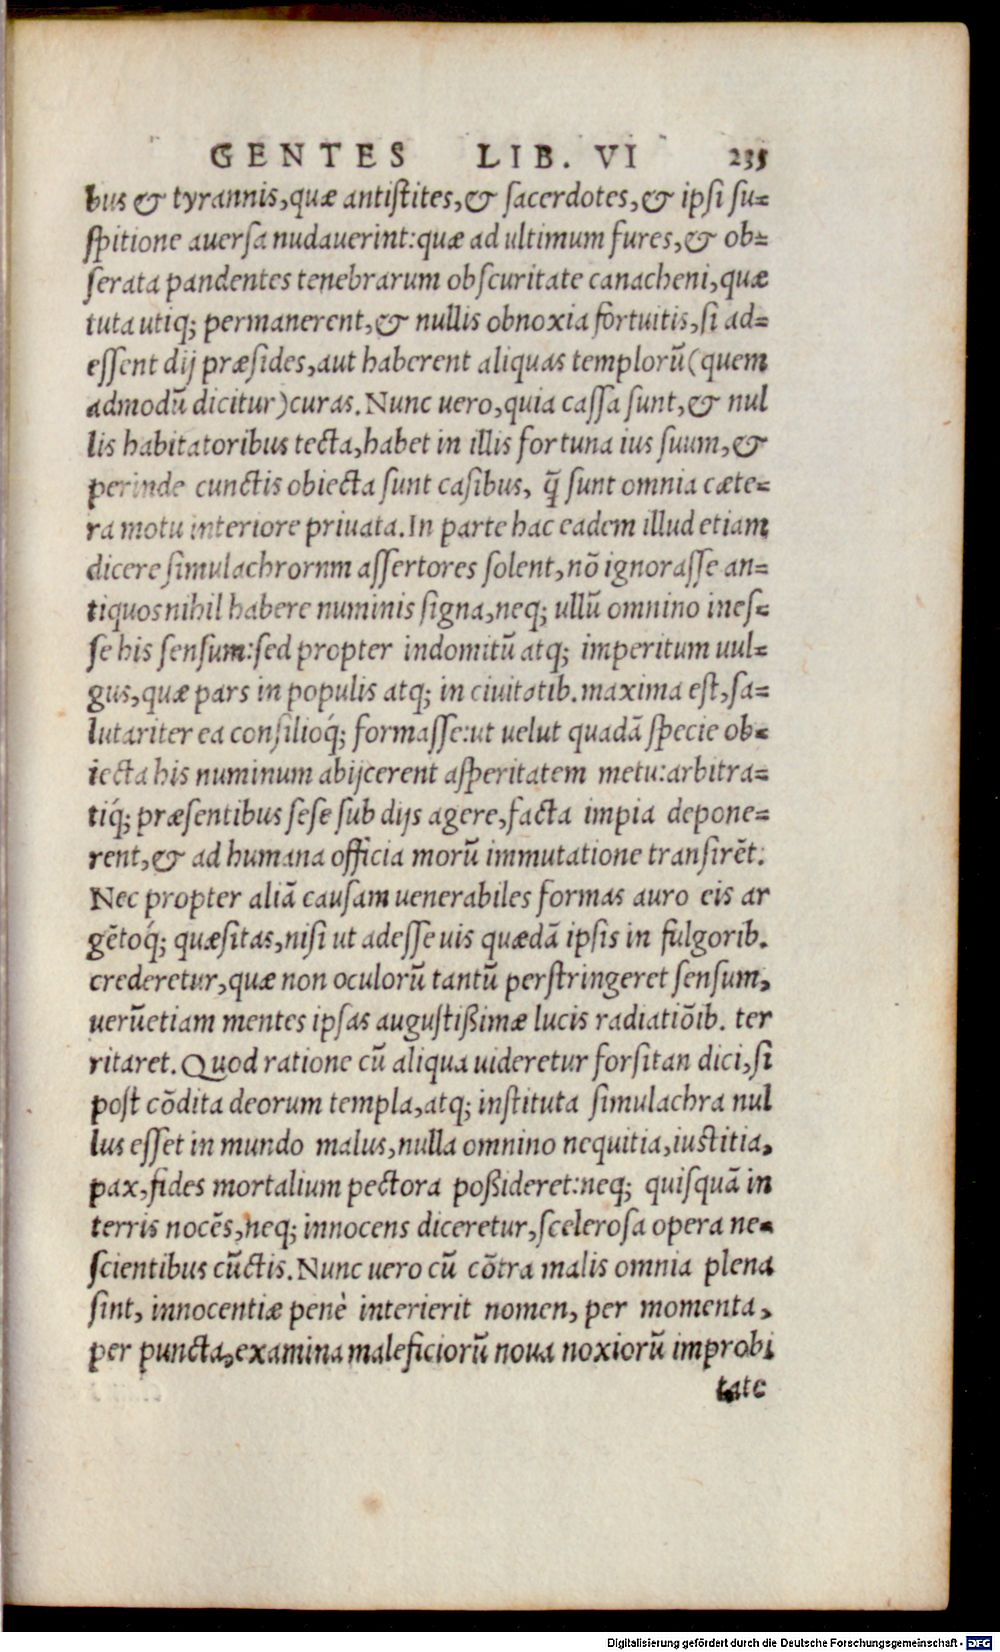 GENTES LIB. VI 235
bus & tyrannis, quæ antistites, & sacerdotes, & ipsi su-
spitione auersa nudauerint: quæ ad ultimum fures, & ob-
serata pandentes tenebrarum obscuritate canacheni, quæ
tuta utiq; permanerent, & nullis obnoxia fortuitis, si ad-
essent dij præsides, aut haberent aliquas templorū (quem
admodū dicitur) curas. Nunc uero, quia cassa sunt, & nul
lis habitatoribus tecta, habet in illis fortuna ius suum, &
perinde cunctis obiecta sunt casibus, q̄ sunt omnia cæte-
ra motu interiore priuata. In parte hac eadem illud etiam
dicere simulachrornm assertores solent, nō ignorasse an-
tiquos nihil habere numinis signa, neq; ullū omnino ines-
se his sensum: sed propter indomitū atq; imperitum uul-
gus, quæ pars in populis atq; in ciuitatib. maxima est, sa-
lutariter ea consilioq́; formasse: ut uelut quadā specie ob-
iecta his numinum abijcerent asperitatem metu: arbitra-
tiq́; præsentibus sese sub dijs agere, facta impia depone-
rent, & ad humana officia morū immutatione transirēt.
Nec propter aliā causam uenerabiles formas auro eis ar
gētoq́; quæsitas, nisi ut adesse uis quædā ipsis in fulgorib.
crederetur, quæ non oculorū tantū perstringeret sensum,
uerūetiam mentes ipsas augustißimæ lucis radiatiōib. ter
ritaret. Quod ratione cū aliqua uideretur forsitan dici, si
post cōdita deorum templa, atq; instituta simulachra nul
lus esset in mundo malus, nulla omnino nequitia, iustitia,
pax, fides mortalium pectora poßideret: neq; quisquā in
terris nocēs, neq; innocens diceretur, scelerosa opera ne-
scientibus cūctis. Nunc uero cū cōtra malis omnia plena
sint, innocentiæ penè interierit nomen, per momenta,
per puncta, examina maleficiorū noua noxiorū improbi
tate
Digitalisierung gefördert durch die Deutsche Forschungsgemeinschaft - DFG